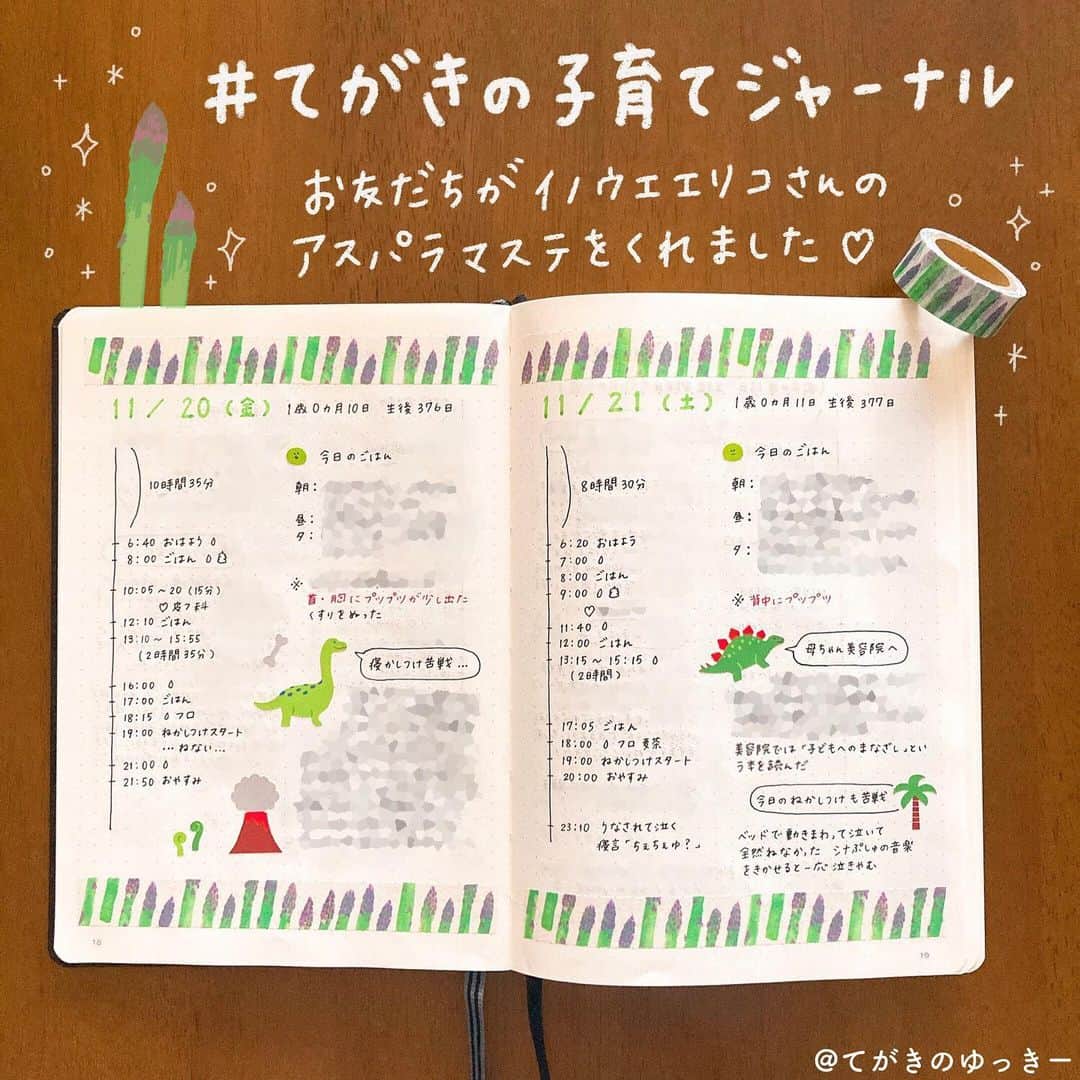 #てがきの子育てジャーナル
お友だちがイノウエエリコさんの
アスパラマステをくれました♡
11/20(金) 1歳0カ月10日 生後376日
10時間35分
6:40 おはよう 0
8:00 ごはん 0
10:05～20(15分)
♡皮フ科
12:10 ごはん
13:10～15:55
(2時間35分)
16:00 0
17:00 ごはん
18:15 0 フロ
19:00 ねかしつけスタート
…ねない…
21:00 0
21:50 おやすみ
今日のごはん
朝:
昼:
夕:
※
首・胸にプツプツが少し出た
くすりをぬった
寝かしつけ苦戦…
18
11/21(土) 1歳0カ月11日 生後377日
8時間30分
6:20 おはよう
7:00 0
8:00 ごはん
9:00 0
♡
11:40 0
12:00 ごはん
13:15～15:15 0
(2時間)
17:05 ごはん
18:00 0 フロ 麦茶
19:00 ねかしつけスタート
20:00 おやすみ
23:10 うなされて泣く
寝言「ちぇちぇゅ?」
今日のごはん
朝:
昼:
夕:
※背中にプツプツ
母ちゃん美容院へ
美容院では「子どもへのまなざし」とい
う本を読んだ
今日のねかしつけも苦戦
ベッドで動きまわって泣いて
全然ねなかった シナぷしゅの音楽
をきかせると一応泣きやむ
19
@てがきのゆっきー